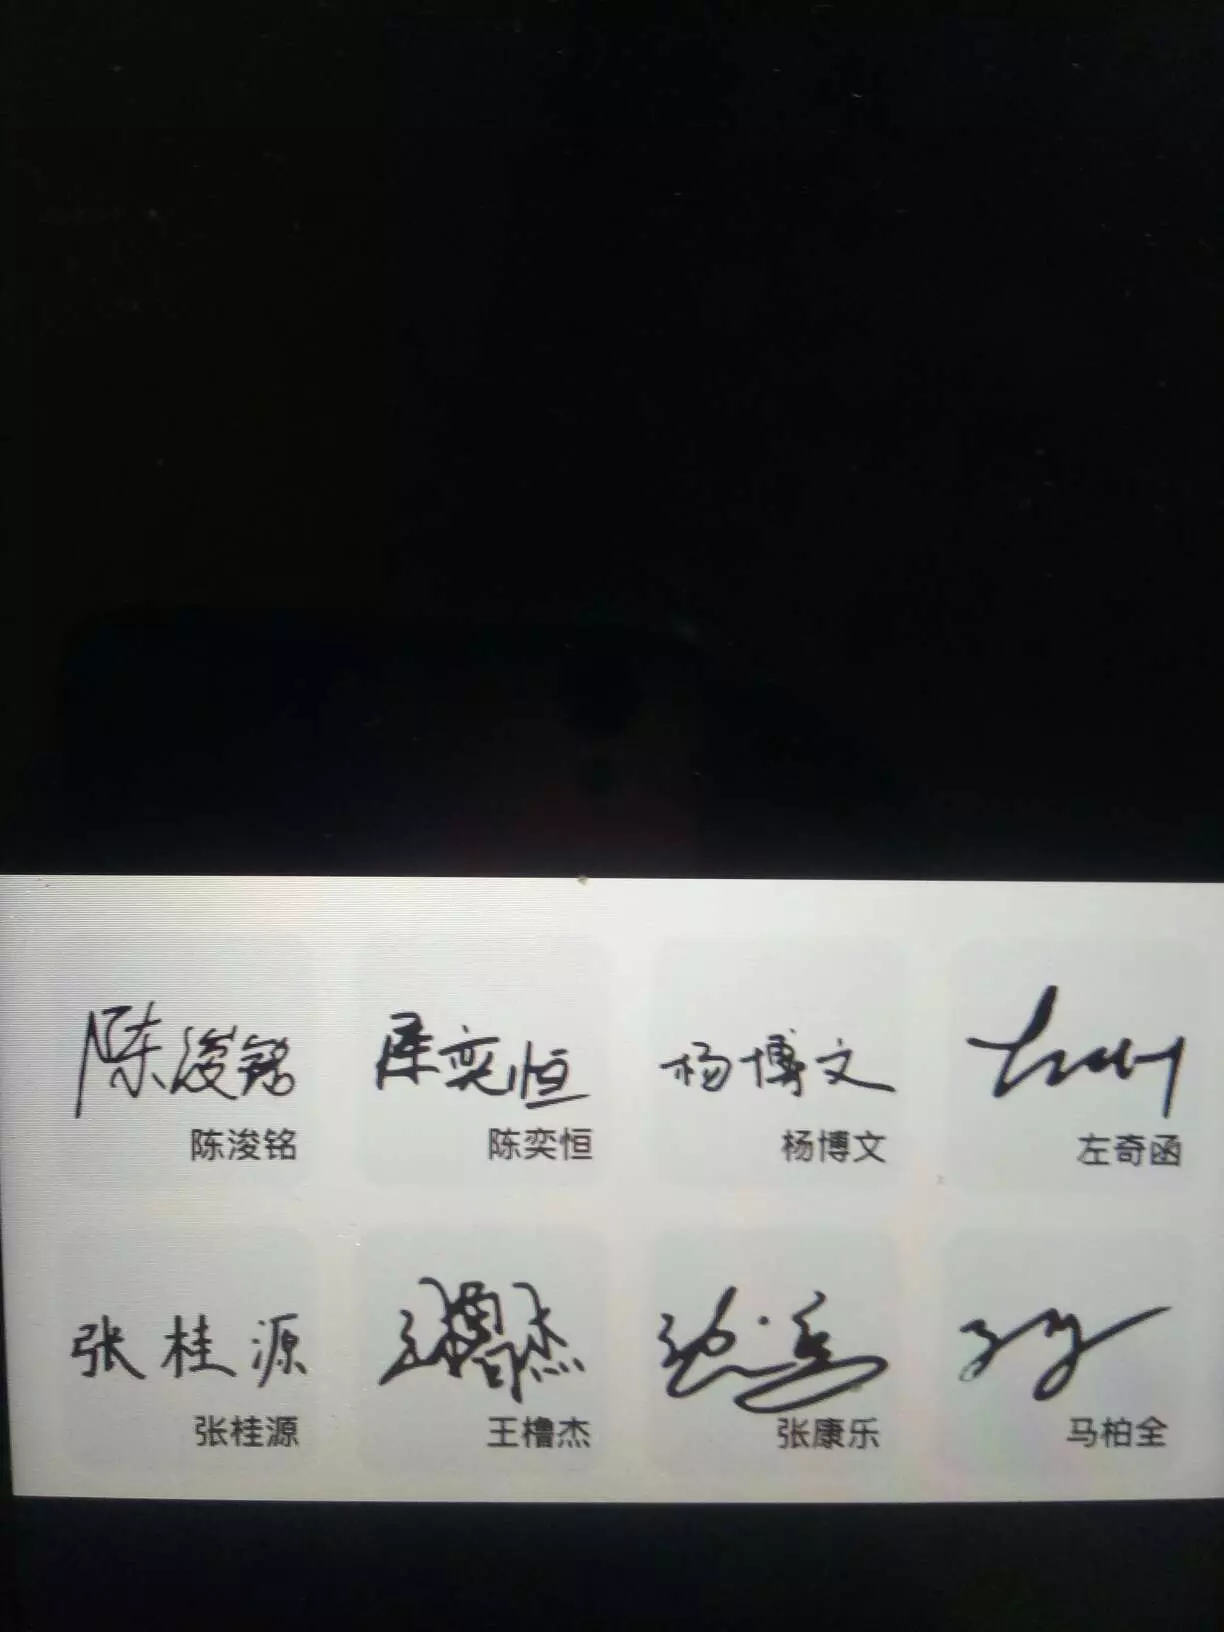 陈浚铭 陈奕恒 杨博文
陈浚铭 陈奕恒 杨博文 左奇函
张桂源 王橹杰
张桂源 王橹杰 张康乐 马柏全